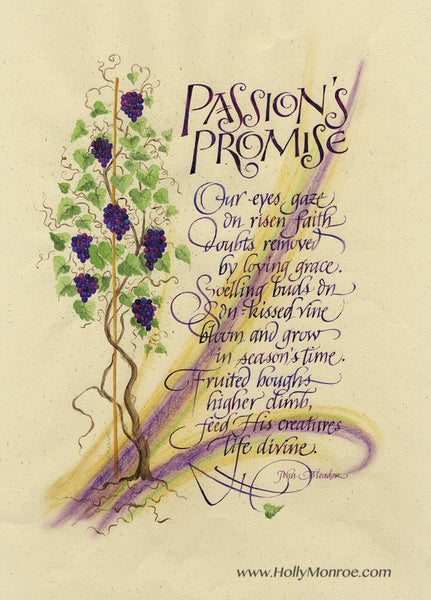 PASSION'S
PROMISE
Our eyes gaze
on risen faith
Doubts removed
by loving grace.
Swelling buds on
Son-kissed vine
bloom and grow
in season's time.
Fruited boughs
higher climb,
feed His creatures
life divine.
John Meador
www.HollyMonroe.com